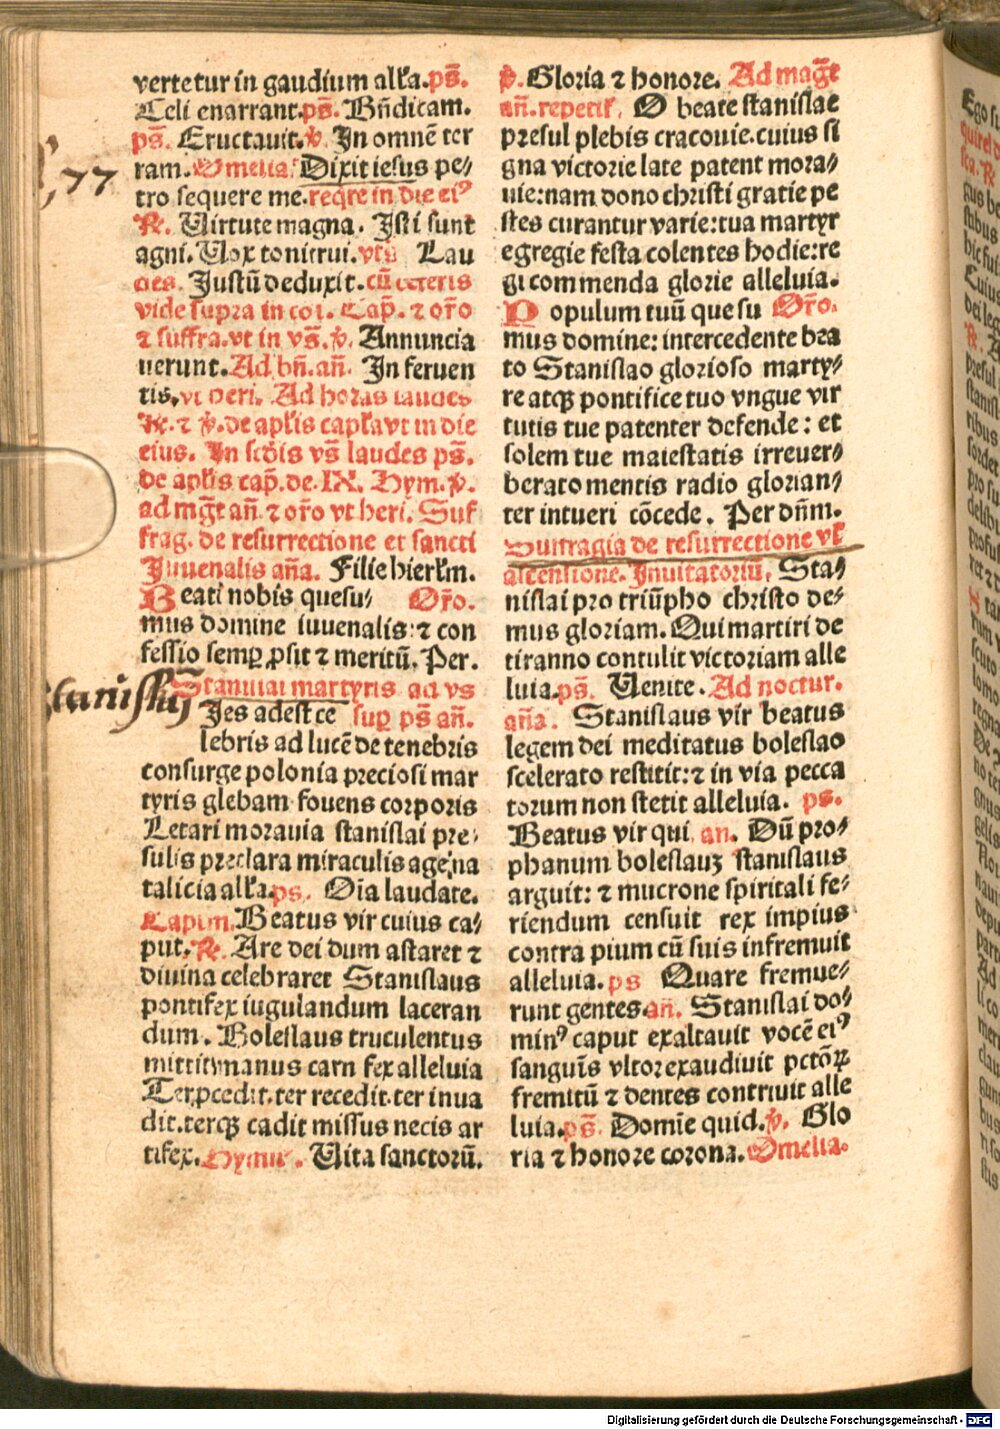 vertetur in gaudium alľa. ps̄.
Celi enarrant. ps̄. Bn̄dicam.
ps̄. Eructauit. ꝟ. In omnē ter
ram. Omelia. Dixit iesus pe⸗
tro sequere me. reqre in die eiꝰ
℟. Uirtute magna. Isti sunt
agni. Uox tonitrui. Lau
des. Justū deduxit. cū ceteris
vide supra in coi. Cap̄. ⁊ or̄o
⁊ suffra. vt in vs̄. ꝟ. Annuncia
uerunt. Ad bn̄. an̄. In feruen
tis. vt heri. Ad horas laudes
℟. ⁊ ꝟ. de apľis capľa vt in die
eius. In scďis vs̄ laudes ps̄.
de apľis cap̄. de. IX. Hym. ꝟ.
ad mḡt an̄. ⁊ or̄o vt heri. Suf
frag. de resurrectione et sancti
Juuenalis an̄a. Filie hierľm.
Beati nobis quesu⸗ Or̄o.
mus domine iuuenalis: ⁊ con
fessio semꝑ ꝓsit ⁊ meritū. Per.
Stanislai martyris ad vs
Stanislaꝰ
Jes adest ce sup ps̄ an̄.
lebris ad lucē de tenebris
consurge polonia preciosi mar
tyris glebam fouens corporis
Letari morauia stanislai pre⸗
sulis preclara miraculis agē na
talicia alľa. ps. Oīa laudate.
Capľm. Beatus vir cuius ca⸗
put. ℟. Are dei dum astaret ⁊
diuina celebraret Stanislaus
pontifex iugulandum laceran
dum. Boleslaus truculentus
mittit manus carnifex alleluia
Ter ꝓcedit. ter recedit. ter inua
dit. terqꝫ cadit missus necis ar
tifex. Hymnꝰ. Uita sanctorū.
ꝟ. Gloria ⁊ honore. Ad magn̄t
an̄. repetiť. O beate stanislae
presul plebis cracouie. cuius si
gna victorie late patent mora⸗
uie: nam dono christi gratie pe
stes curantur varie: tua martyr
egregie festa colentes hodie: re
gi commenda glorie alleluia.
Populum tuū quesu Or̄o.
mus domine: intercedente bea
to Stanislao glorioso marty⸗
re atqꝫ pontifice tuo vngue vir
tutis tue patenter defende: et
solem tue maiestatis irreuer⸗
berato mentis radio glorian⸗
ter intueri cōcede. Per dn̄m.
Suffragia de resurrectione vľ
ascensione. Inuitatoriū. Sta⸗
nislai pro triūpho christo de⸗
mus gloriam. Qui martiri de
tiranno contulit victoriam alle
luia. ps̄. Uenite. Ad noctur.
an̄a. Stanislaus vir beatus
legem dei meditatus boleslao
scelerato restitit: ⁊ in via pecca
torum non stetit alleluia. ps.
Beatus vir qui. an. Dū pro⸗
phanum boleslauꝫ stanislaus
arguit: ⁊ mucrone spiritali fe⸗
riendum censuit rex impius
contra pium cū suis infremuit
alleluia. ps Quare fremue⸗
runt gentes. an̄. Stanislai do⸗
minꝰ caput exaltauit vocē eiꝰ
sanguīs vltor exaudiuit pctōꝝ
fremitū ⁊ dentes contriuit alle
luia. ps̄. Domīe quid. ꝟ. Glo
ria ⁊ honore corona. Omelia.
Digitalisierung gefördert durch die Deutsche Forschungsgemeinschaft - DFG